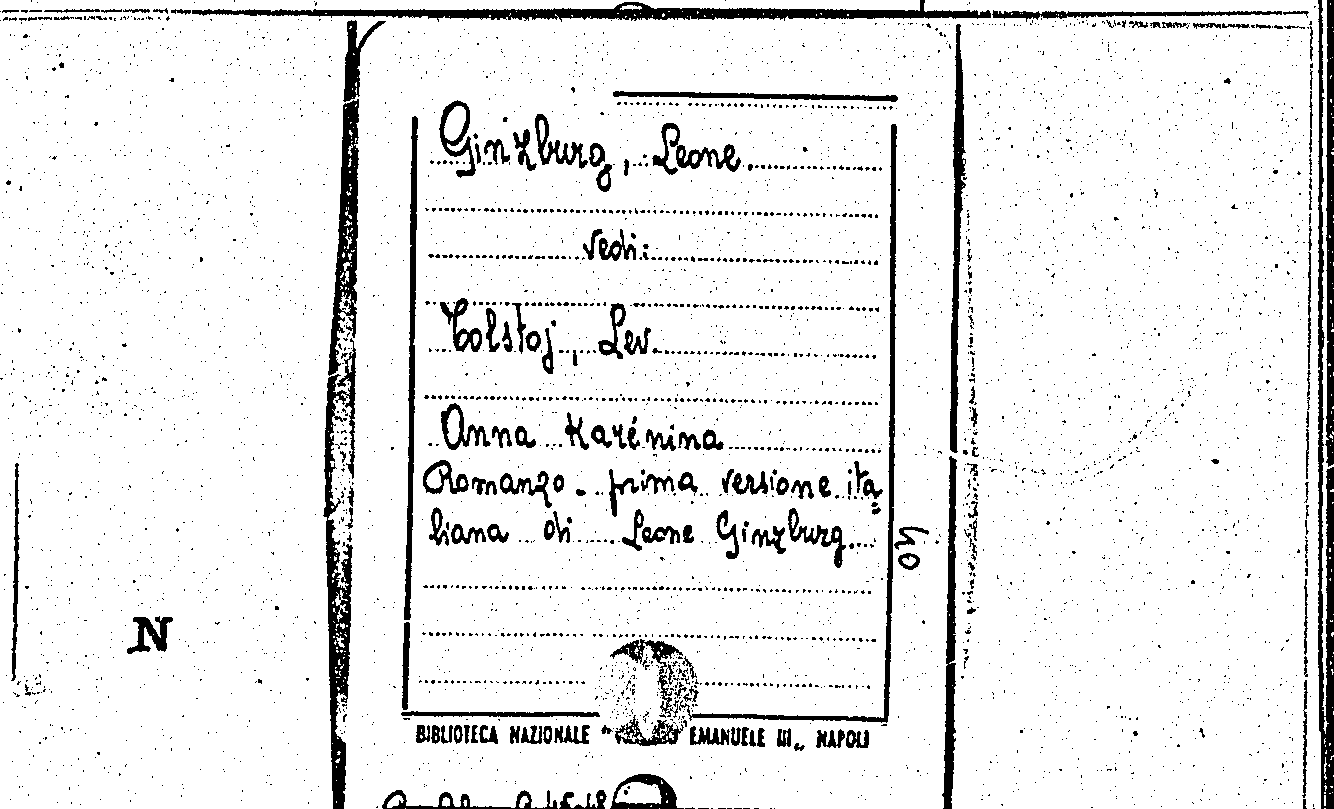 Ginzburg, Leone.
vedi:
Tolstoj, Lev.
Anna Karénina
Romanzo - prima versione ita=
liana di Leone Ginzburg.
40
N
BIBLIOTECA NAZIONALE " EMANUELE III„ NAPOLI